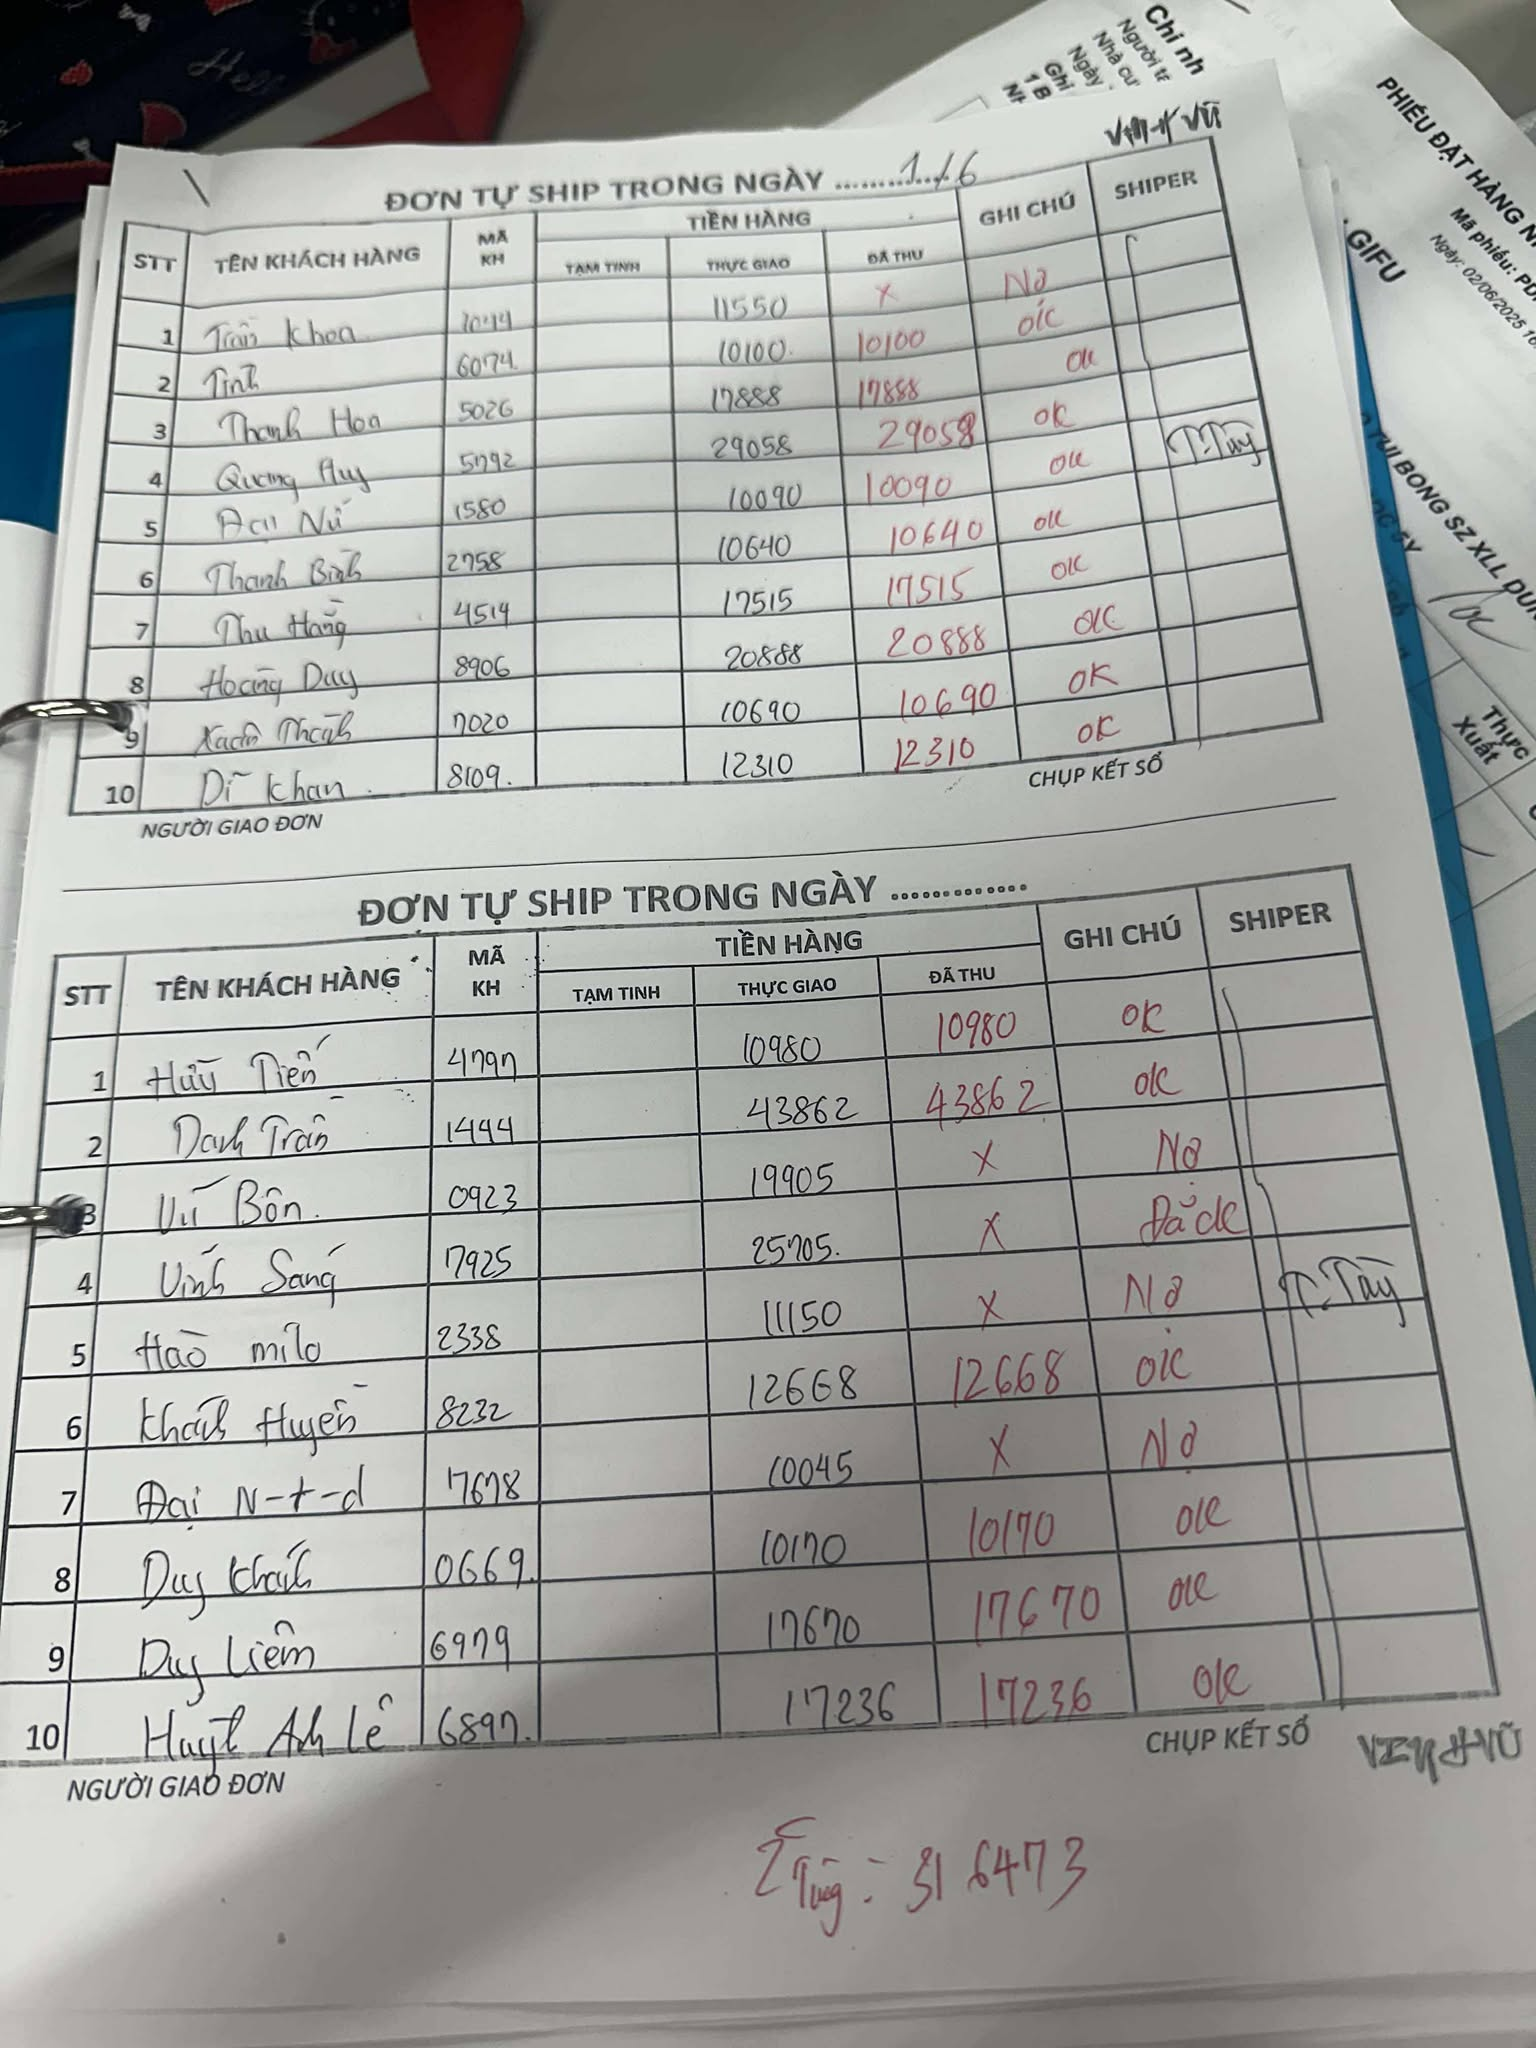 Chi nh
Người tạ
Nhà cư
Ngày
Ghi
1 B
PHIẾU ĐẶT HÀNG N
Mã phiếu: PD
Ngày: 02/06/2025 16:
GIFU
TUI BONG SZ XLL DÙN
Thực
Xuất
Vũ
ĐƠN TỰ SHIP TRONG NGÀY ............. 1/6
STT TÊN KHÁCH HÀNG MÃ KH TIỀN HÀNG GHI CHÚ SHIPER
TẠM TINH THỰC GIAO ĐÃ THU
1 Trần Khoa 11550 X Nợ
2 Tính 6074 10100 10100 ok
3 Thanh Hoa 5026 17888 17888 ok
4 Quang Huy 5792 29058 29058 ok
5 Đại Nứ 1580 10090 10090 ok
6 Thanh Bình 2758 10640 10640 ok
7 Thu Hằng 4514 17515 17515 ok
8 Hoàng Duy 8906 20888 20888 ok
9 7020 10690 10690 ok
10 Dĩ Khan 8109. 12310 12310 ok
NGƯỜI GIAO ĐƠN CHỤP KẾT SỐ
ĐƠN TỰ SHIP TRONG NGÀY .............
STT TÊN KHÁCH HÀNG MÃ KH TIỀN HÀNG GHI CHÚ SHIPER
TẠM TINH THỰC GIAO ĐÃ THU
1 Hữu Tiến 4797 10980 10980 ok
2 Danh Trần 1444 43862 43862 ok
3 Vú Bôn. 0923 19905 X Nợ
4 7925 25705. X
5 Hào milo 2338 11150 X Nợ
6 Khánh Huyền 8232 12668 12668 ok
7 Đại N-t-d 7678 10045 X Nợ
8 Duy Khánh 0669. 10170 10170 ok
9 Duy Liêm 6979 17670 17670 ok
10 Huỳnh Anh Lê 6897. 17236 17236 ok
NGƯỜI GIAO ĐƠN CHỤP KẾT SỐ
Vũ
316473